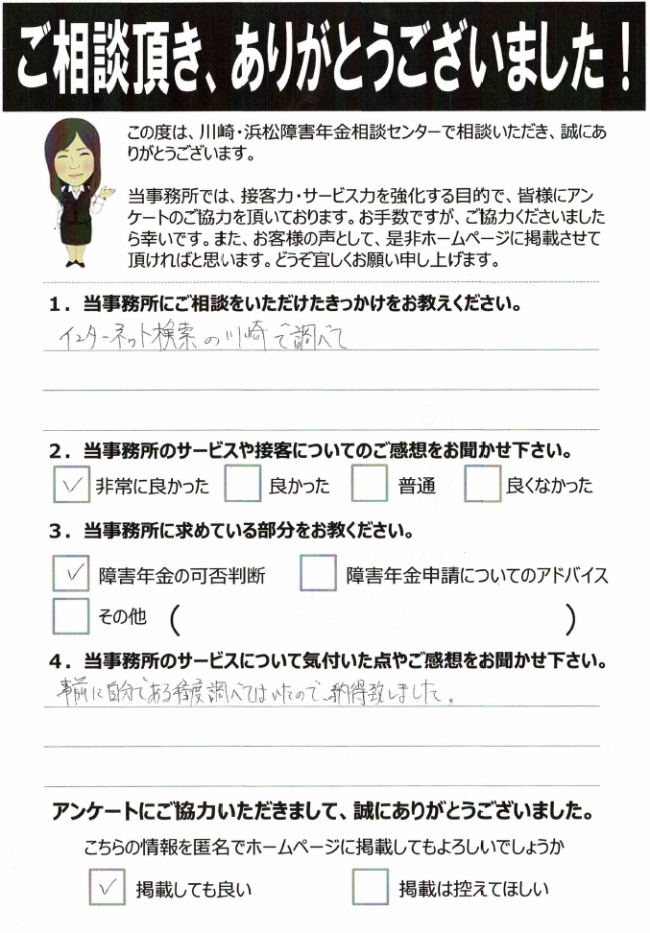 ご相談頂き、ありがとうございました！
この度は、川崎・浜松障害年金相談センターで相談いただき、誠にあ
りがとうございます。
当事務所では、接客力・サービス力を強化する目的で、皆様にアン
ケートのご協力を頂いております。お手数ですが、ご協力くださいました
ら幸いです。また、お客様の声として、是非ホームページに掲載させて
頂ければと思います。どうぞ宜しくお願い申し上げます。
１．当事務所にご相談をいただけたきっかけをお教えください。
インターネット検索の川崎で調べて
２．当事務所のサービスや接客についてのご感想をお聞かせ下さい。
✓ 非常に良かった 良かった 普通 良くなかった
３．当事務所に求めている部分をお教ください。
✓ 障害年金の可否判断 障害年金申請についてのアドバイス
その他 （ ）
４．当事務所のサービスについて気付いた点やご感想をお聞かせ下さい。
事前に自分である程度調べてはいたので、納得致しました。
アンケートにご協力いただきまして、誠にありがとうございました。
こちらの情報を匿名でホームページに掲載してもよろしいでしょうか
✓ 掲載しても良い 掲載は控えてほしい